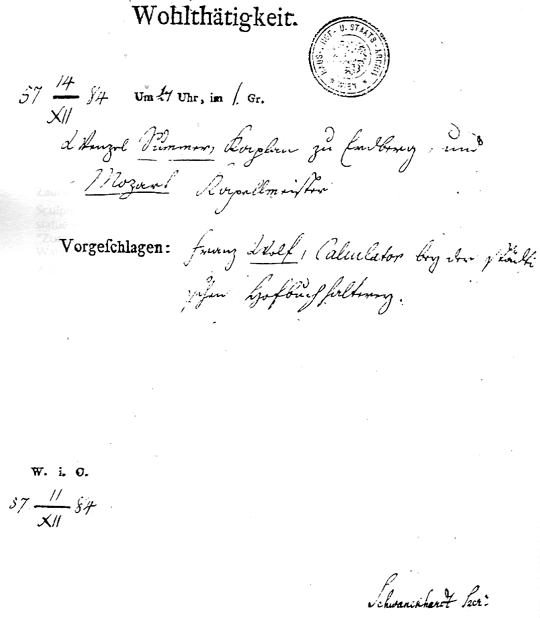 Wohlthätigkeit.
HAUS-, HOF- U. STAATS-ARCHIV
WIEN
57 14/XII 84 Um Uhr, im 1. Gr.
Wenzel Summer, Kaplan zu Erdberg, und
Mozart Kapellmeister
Vorgeschlagen: Franz Wolf, Calculator bey der städti
schen Hofbuchhalterey.
W. i. O.
57 11/XII 84
Schwanckhardt Secr: